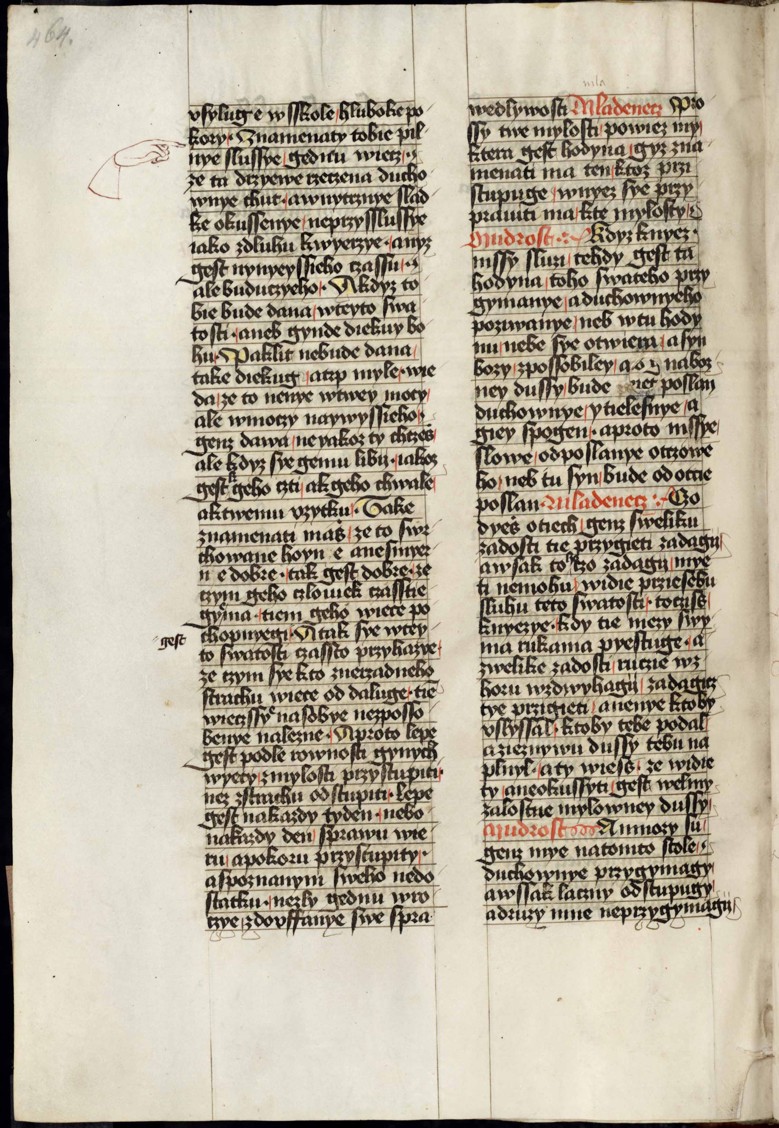 464.
vsyluge w sskole hluboke po
kory. Znamenaty tobie pil
nye slussye gednu wiecz
ze ta drzyewe rzeczena ducho
wnye chut. a wnytrznye slad
ke okussenye neprzyslussye
iako zdluhu k wyerzye. anyz
gest nynyeyssieho czassu.
ale buduczyeho. A kdyz to
bie bude dana w teyto swa
tosti. aneb gynde diekuy bo
hu. Paklit nebude dana
take diekug a trp myle. wie
da ze to nenye w twey moczy
ale w moczy naywyssieho.
genz dawa ne yakoz ty chczeš
ale kdyz sye gemu libii. iakoz
gest k geho czti ak geho chwale
ak twemu vzytku. Take
znamenati maš ze to swr
chowane hoyn e anesmyer
n e dobre. tak gest dobre. ze
czym geho czlowiek czasstie
gyma. tiem geho wiece po
chopuyegi. A tak sye w tey
gest
to swatosti czassto przyhazye.
ze czym sye kto znerzadneho
strachu wiece od daluge. tie
wieczssy na sobye nezposso
benye nalezne. A proto lepe
gest podle rownosti gynych
wyety z mylosti przystupiti.
nez zstrachu odstupiti. lepe
gest na kazdy tyden. nebo
na kazdy den sprawu wie
ru a pokoru przystupity.
a spoznanym sweho nedo
statku. nezly gednu w ro
czye z dovffanye swe spra
wedlywosti Mladenecz Pro
ssy twe mylosti powiez my
ktera gest hodyna gyz zna
menati ma ten ktoz przi
stupuge w nyez sye przy
prawiti ma k te mylosty
Mudrost Kdyz knyez.
mssy sluzi tehdy gest ta
hodyna toho swateho przy
gymanye a duchownyeho
pozywanye neb w tu hody
nu nebe sye otwiera a syn
bozy zpossobiley naboz
ney dussy bude poslan
duchownye y tielesnye a
giey spogen. a proto mssye
slowe od poslanye otczowe
ho neb tu syn bude od otcie
poslan. Mladenecz Czo
dyeš o tiech genz s weliku
zadosti tie przygieti zadagii
a wsak to czo zadagii mye
ti nemohu widie przie sebu
sluhu teto swatosti. toczuš
knyezye. kdy tie mezy swy
ma rukama pyestuge. a
z welike zadosti rucie wz
horu wzdwyhagii zadagicz
tye przigieti a nenye ktoby
vslyssal. ktoby tebe podal
a zieznywu dussy tebu na
plnyl. a ty wieš. ze widie
ty a neokussyti gest welmy
zalostne mylowney dussy
Mudrost A mnozy su
genz mye na tomto stole
duchownye przygymagy
a wssak laczny odstupugy
a druzy mne neprzygymagii